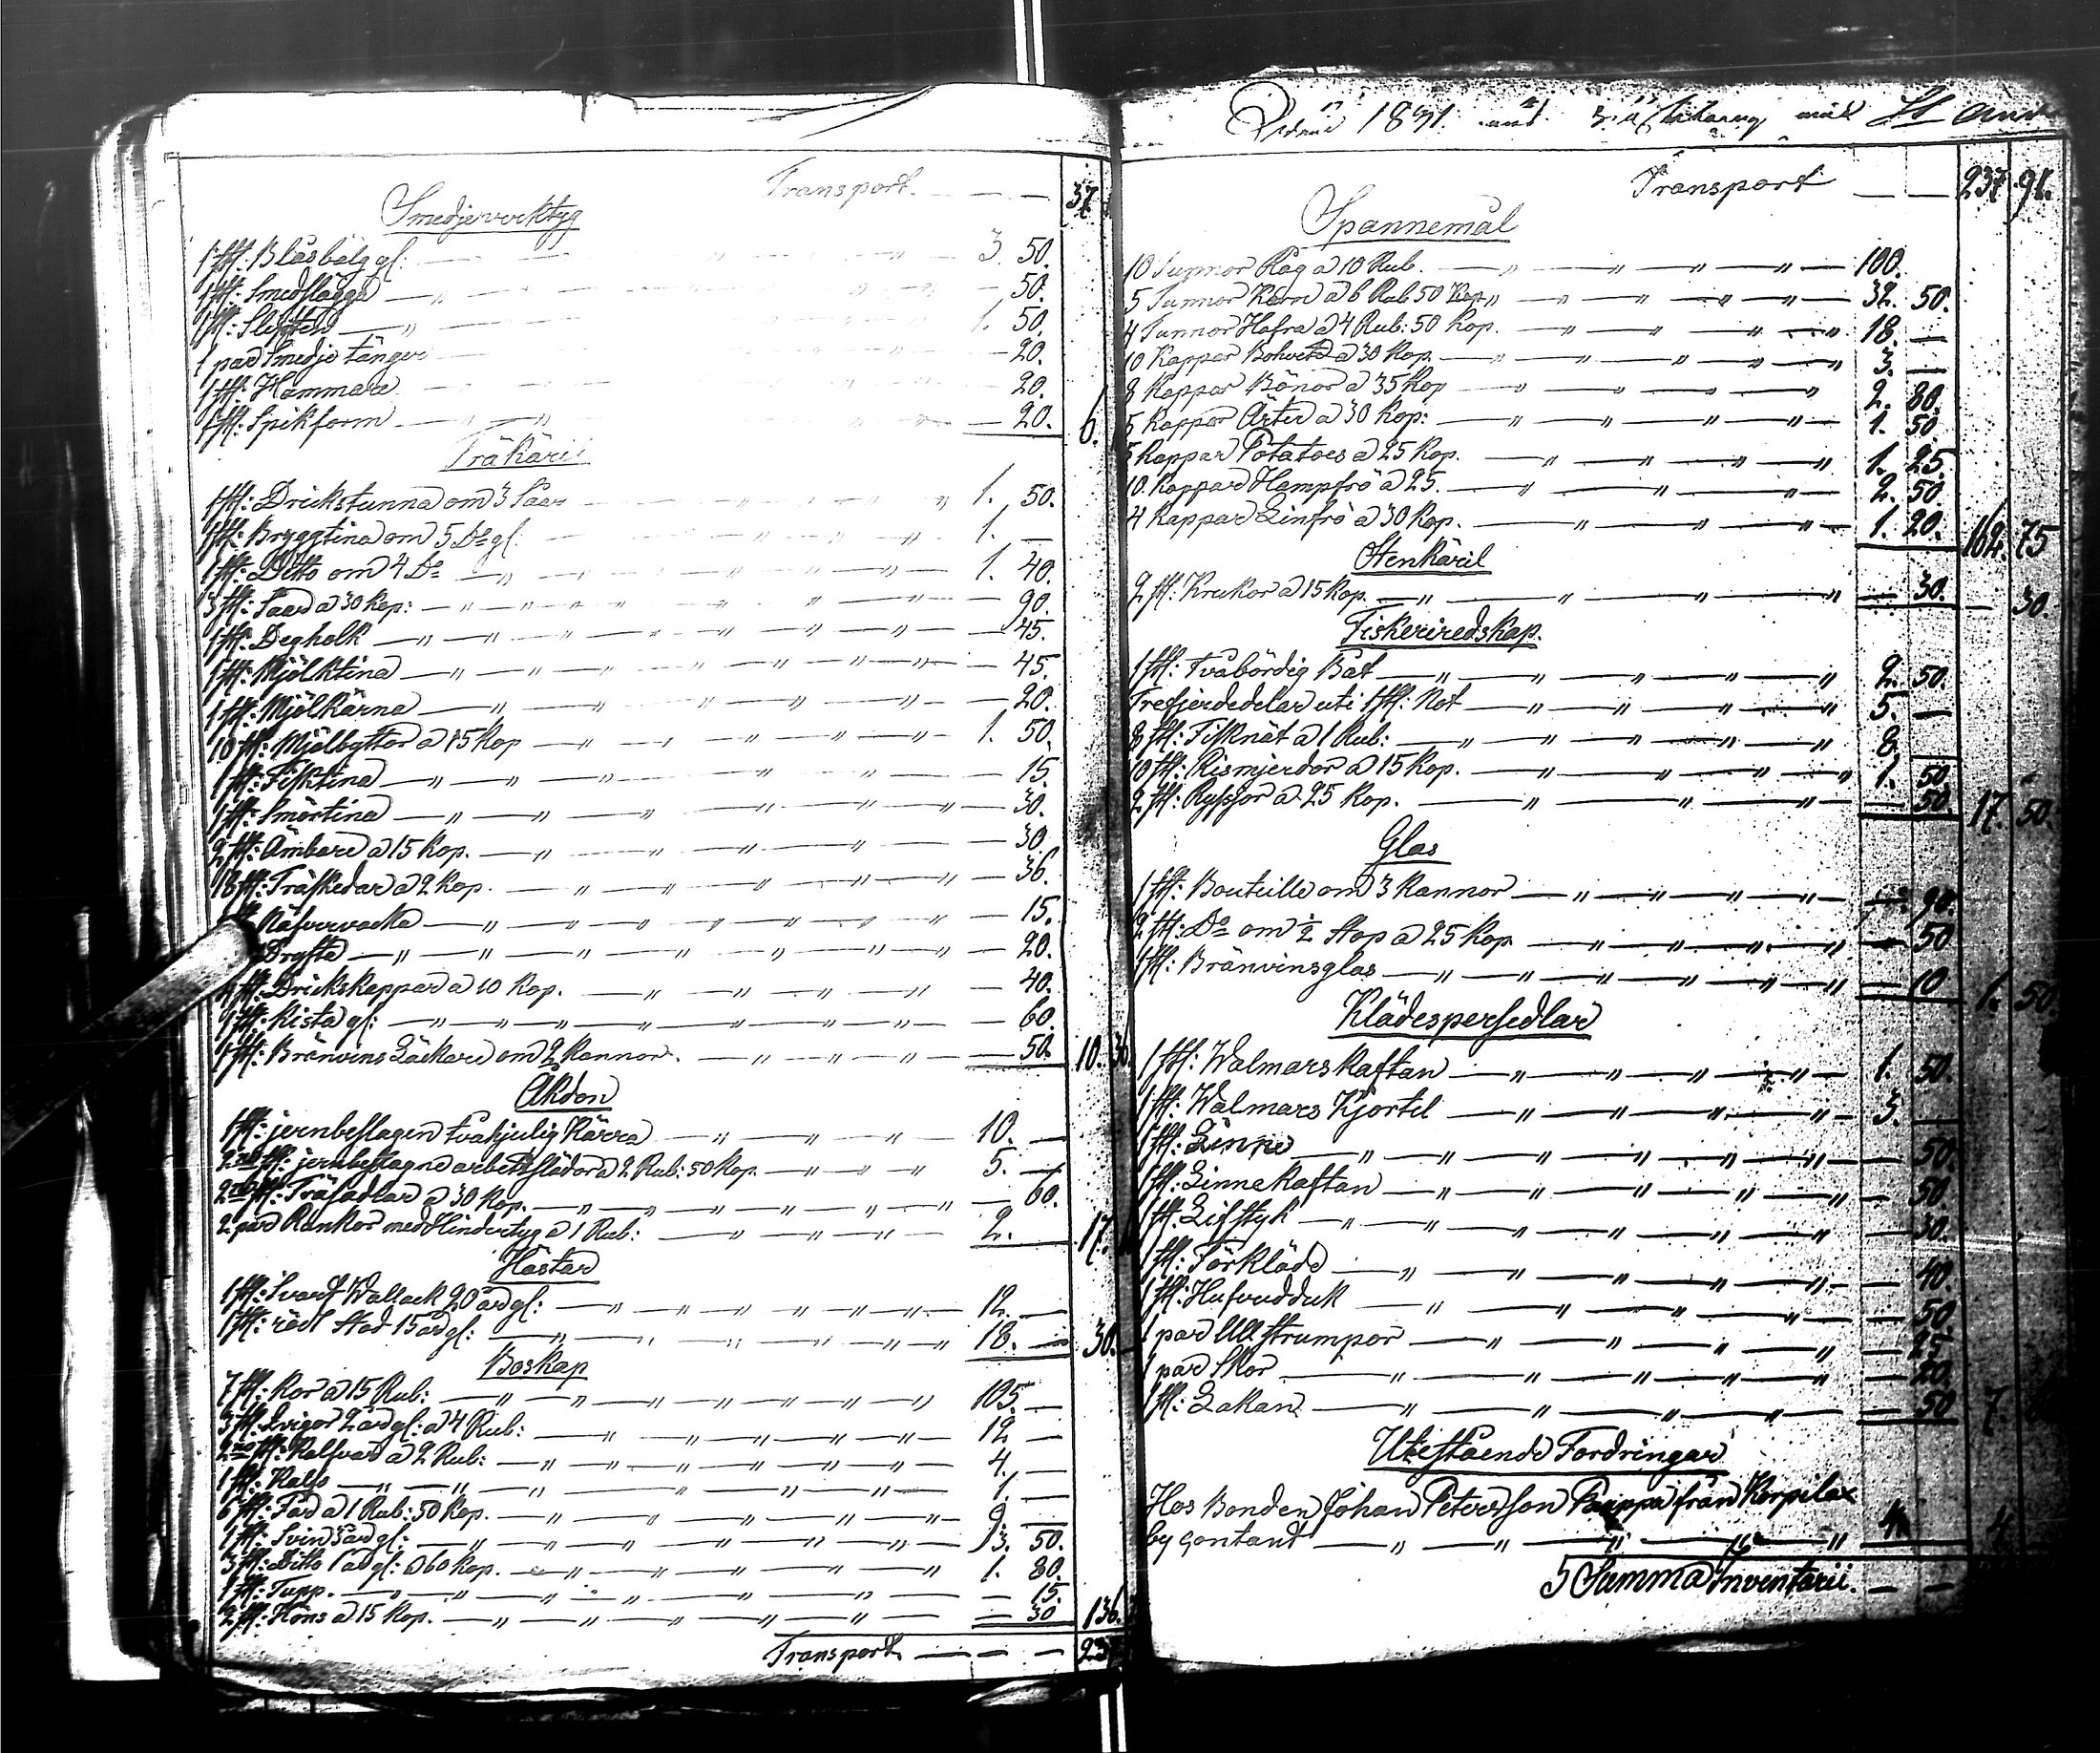 Transport. — — 37
Smedjeverktyg
1 st: Blåsbälg gl: — „ — „ 3. 50.
1 st: Smedslägga — „ — „ — 50.
1 st: — „ — „ 1. 50.
1 par Smedje tänger — 20.
1 st: Hammare — 20.
1 st: Spikform — „ — „ — 20. 6.
Träkäril
1 st: Drickstunna om 3 Saar — „ — „ 1. 50.
1 st: Bryggtina om 5 Do gl: — „ — „ 1. —
1 st: Ditto om 4 Do — „ — „ 1. 40.
3 st: Saar a 30 Kop: — „ — „ — 90.
1 st: Degholk — „ — „ — 45.
1 st: Mjölktina — „ — „ — 45.
1 st: Mjölkärna — „ — „ — 20.
10 st: Mjölbyttor a 15 Kop — „ — „ 1. 50.
1 st: Fisktina — „ — „ — 15.
1 st: Smörtina — „ — „ — 30.
2 st: Ämbare a 15 Kop. — „ — „ — 30.
18 st: Träskedar a 2 Kop. — „ — „ — 36.
Näfvervacka — „ — „ — 15.
Dryfta — „ — „ — 20.
4 st: Drickskappar a 10 Kop. — „ — „ — 40.
1 st: Kista gl: — „ — „ — 60.
1 st: Bränvins Läckare om 2 Kannor. — „ — „ — 50. 10. 36
Åkdon
1 st: jernbeslagen tvåhjulig Kärra — „ — „ 10. —
2ne st: jernbeslagne arbetsslädor a 2 Rub: 50 Kop. — „ — „ 5. —
2ne st: Träsadlar a 30 Kop. — „ — „ — 60.
2 par Rankor med Hindertyg a 1 Rub: — „ — „ 2. 17.
Hästar
1 st: Svart Wallack 20 år gl: — „ — „ 12. —
1 st: röd Stod 15 år gl: — „ — „ 18. — 30.
Boskap
7 st: Kor a 15 Rub: — „ — „ 105. —
3 st: Qvigor 2 år gl: a 4 Rub: — „ — „ 12 —
2ne st: Kalfvar a 2 Rub: — „ — „ 4. —
1 st: Kalf — „ — „ 1. —
6 st: Får a 1 Rub: 50 Kop. — „ — „ 9. —
1 st: Svin 3 år gl: — „ — „ 3. 50.
3 st: Ditto 1 år gl: a 60 Kop. — „ — „ 1. 80.
1 st: Tupp. — „ — „ — 15.
2 st: Höns a 15 Kop. — „ — „ — 30 136.
Transport. — — 237
1831
Transport — — 237. 91.
Spannemål
10 Tunnor Råg a 10 Rub. — „ — „ 100.
5 Tunnor Korn a 6 Rub 50 Kop — „ — „ 32. 50.
4 Tunnor Hafra a 4 Rub: 50 Kop. — „ — „ 18. —
10 Kappar Bohvete a 30 Kop. — „ — „ 3. —
8 Kappar Bönor a 35 Kop — „ — „ 2. 80.
5 Kappar Ärter a 30 Kop: — „ — „ 1. 50
5 Kappar Potatoes a 25 Kop. — „ — „ 1. 25.
10. Kappar Hampfrö a 25. — „ — „ 2. 50
4 Kappar Linfrö a 30 Kop. — „ — „ 1. 20. 162. 75
Stenkäril
2 st: Krukor a 15 Kop. — „ — „ — 30. — 30.
Fiskeriredskap.
1 st: Tvåbördig Båt — „ — „ 2. 50.
Trefjerdedelar uti 1 st: Not — „ — „ 5. —
8 st: Fisknät a 1 Rub: — „ — „ 8. —
10 st: Rismjerdor a 15 Kop. — „ — „ 1. 50
2 st: Ryssjor a 25 Kop. — „ — „ — 50. 17. 50.
Glas
1 st: Bouteille om 3 Kannor — „ — „ — 90.
2 st: Do om ½ Stop a 25 Kop — „ — „ — 50
1 st: Bränvinsglas — „ — „ — 10 1. 50
Klädespersedlar
1 st: Walmars Kaftan — „ — „ 1. 50.
1 st: Walmars Kjortel — „ — „ 3. —
1 st: — „ — „ — 50.
1 st: Linne Kaftan — „ — „ — 50.
1 st: Lifstyk — „ — „ — 30.
1 st: Förkläde — „ — „ — 40.
1 st: Hufvudduk — „ — „ — 50
1 par Ull strumpor — „ — „ — 25
1 par Skor — „ — „ — 20.
1 st: Lakan — „ — „ — 50 7.
Utestående Fordringar
Hos Bonden Johan Petersson från Korpilax
by contant — „ — „ 4. 4.
Summa Inventarii. — —